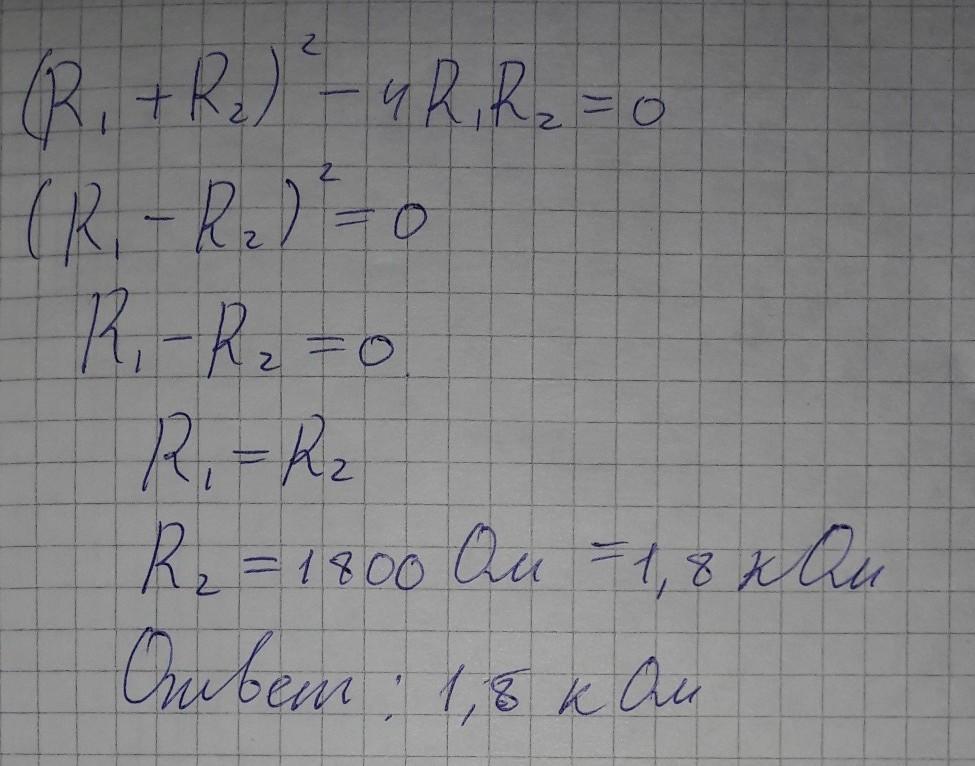 (R₁ + R₂)² - 4R₁R₂ = 0
(R₁ - R₂)² = 0
R₁ - R₂ = 0
R₁ = R₂
R₂ = 1800 Ом = 1,8 кОм
Ответ: 1,8 кОм